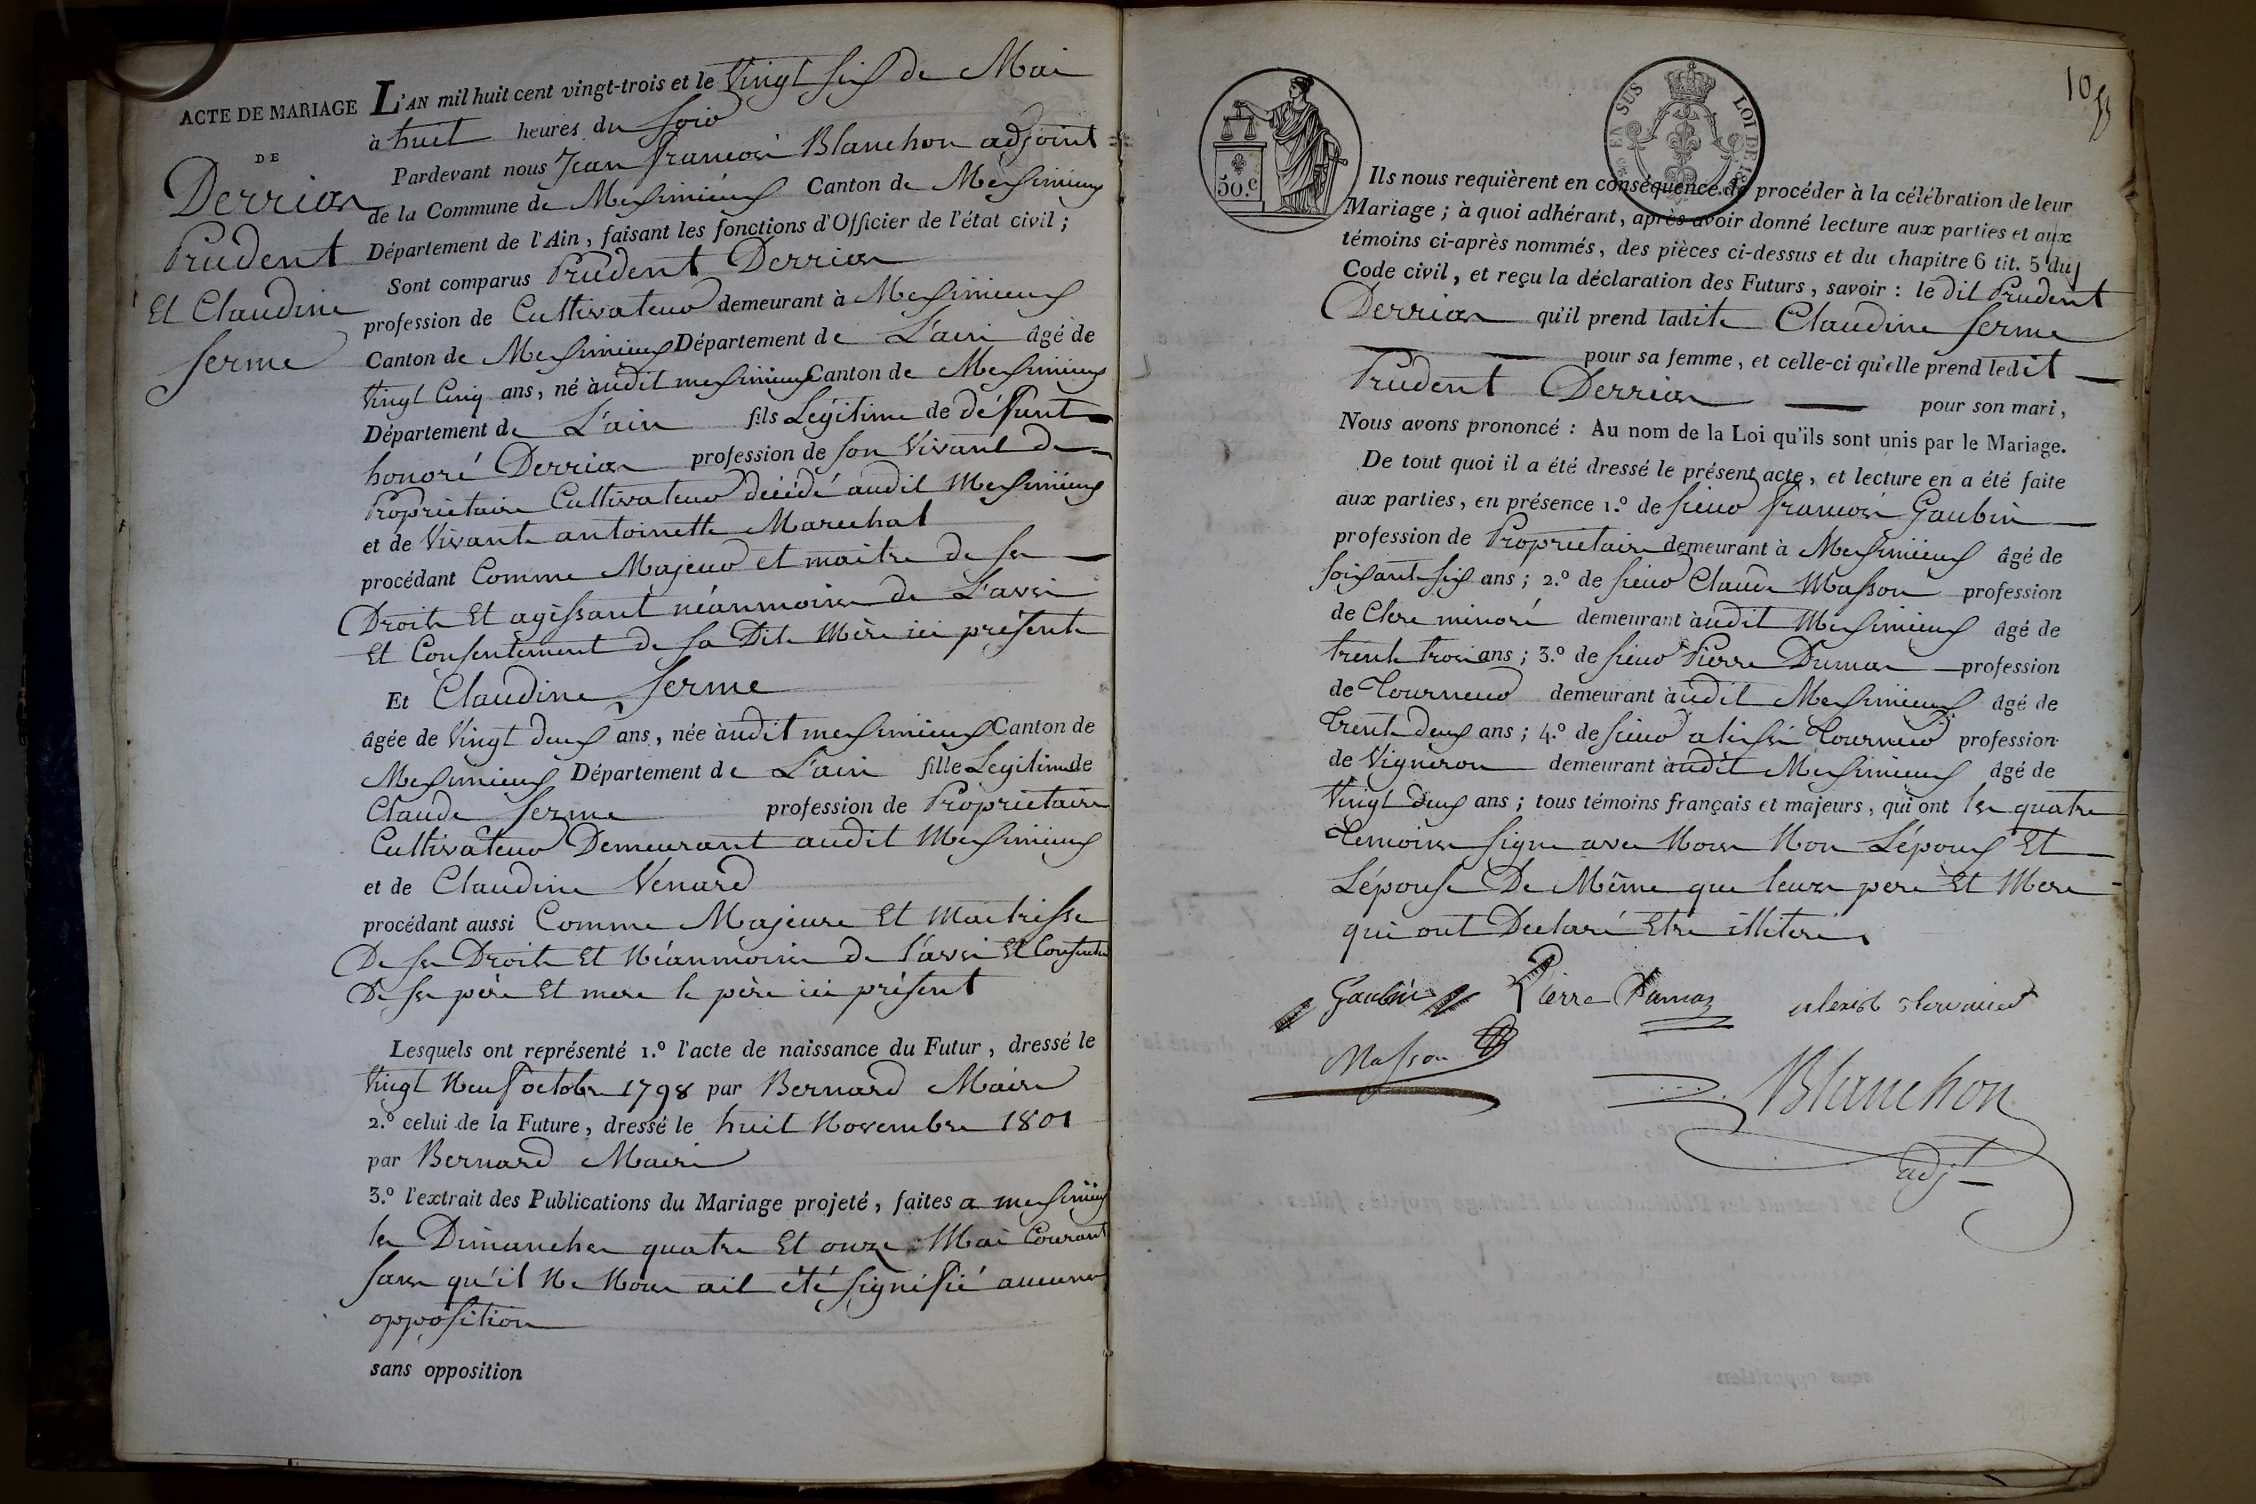 ACTE DE MARIAGE
DE
Derrias
Prudent
Et Claudine
ferme
L'AN mil huit cent vingt-trois et le Vingt six de Mai
à huit heures du Soir
Pardevant nous Jean francois Blanchon adjoint
de la Commune de Meximieux Canton de Meximieux
Département de l'Ain, faisant les fonctions d'Officier de l'état civil;
Sont comparus Prudent Derrias
profession de Cultivateur demeurant à Meximieux
Canton de Meximieux Département de L'ain âgé de
Vingt Cinq ans, né audit meximieux Canton de Meximieux
Département de L'ain fils Légitime de défunt
honoré Derrias profession de son Vivant de
Propriétaire Cultivateur décédé audit Meximieux
et de Vivante antoinette Marechal
procédant Comme Majeur et maitre de ses
Droits Et agissant néanmoins de L'avis
Et Consentement de sa Dite Mère ici présente
Et Claudine ferme
âgée de Vingt deux ans, née audit meximieux Canton de
Meximieux Département de L'ain fille Legitime de
Claude ferme profession de Propriétaire
Cultivateur Demeurant audit Meximieux
et de Claudine Venard
procédant aussi Comme Majeure Et Maitrisse
De ses Droits Et Néanmoins de l'avis Et Consente
De ses père Et mere le père ici présent
Lesquels ont représenté 1.º l'acte de naissance du Futur, dressé le
Vingt Neuf octobre 1798 par Bernard Maire
2.º celui de la Future, dressé le huit Novembre 1801
par Bernard Maire
3.º l'extrait des Publications du Mariage projeté, faites a meximieux
les Dimanches quatre Et onze Mai Courant
sans qu'il Ne Nous ait été signifié aucune
opposition
sans opposition
10
50.c
EN SUS
LOI DE
Ils nous requièrent en conséquence de procéder à la célébration de leur
Mariage; à quoi adhérant, après avoir donné lecture aux parties et aux
témoins ci-après nommés, des pièces ci-dessus et du chapitre 6 tit. 5 du
Code civil, et reçu la déclaration des Futurs, savoir: le dit Prudent
Derrias qu'il prend ladite Claudine ferme
pour sa femme, et celle-ci qu'elle prend ledit
Prudent Derrias pour son mari,
Nous avons prononcé: Au nom de la Loi qu'ils sont unis par le Mariage.
De tout quoi il a été dressé le présent acte, et lecture en a été faite
aux parties, en présence 1.º de sieur francois Gaubin
profession de Propriétaire demeurant à Meximieux âgé de
soixante six ans; 2.º de sieur Claude Masson profession
de Clerc minoré demeurant audit Meximieux âgé de
trente trois ans; 3.º de sieur Pierre Dumas profession
de Tourneur demeurant audit Meximieux âgé de
Trente deux ans; 4.º de sieur alissi Tourneur profession
de Vigneron demeurant audit Meximieux âgé de
Vingt deux ans; tous témoins français et majeurs, qui ont les quatre
Temoins signe avec Nous Non L'époux Et
L'épouse De Même que leurs pere Et Mere
qui ont Declaré Etre illiteré
Gaubin Pierre Damaz alexist
Masson
Blanchon
adjt